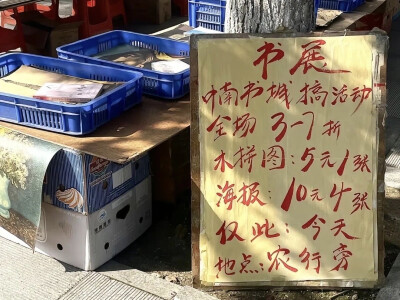 书展
中南书城 搞活动
全场 3-7折
木拼图：5元1张
海报：10元4张
仅此：今天
地点：农行旁